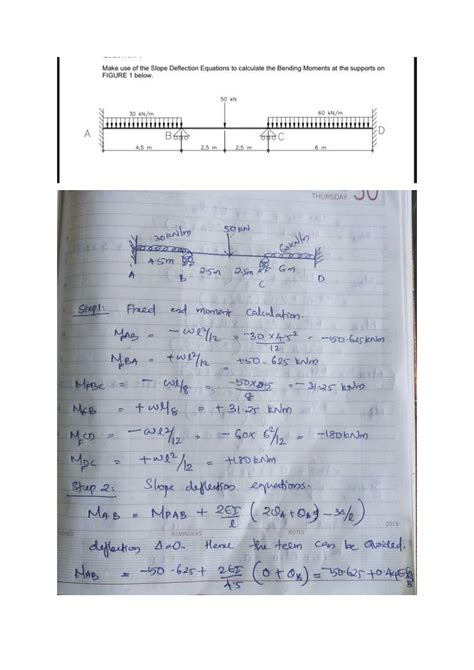 Make use of the Slope Deflection Equations to calculate the Bending Moments at the supports on
FIGURE 1 below.
50 kN
30 kN/m
60 kN/m
A
B
C
D
4,5 m
2,5 m
2,5 m
6 m
THURSDAY 30
30kN/m
50kN
60kN/m
4.5m
2.5m
2.5m
6m
A
B
C
D
Step1: Fixed end moment calculation.
MFAB = -wl²/12 = -30 × 4.5²/12 = -50.625kNm
MFBA = +wl²/12 = +50.625 kNm
MFBC = -wl/8 = -50×5/8 = -31.25 kNm
MFCB = +wl/8 = +31.25 kNm
MFCD = -wl²/12 = -60× 6²/12 = -180kNm
MFDC = +wl²/12 = +180kNm
Step 2: Slope deflection equations.
MAB = MFAB + 2EI/l (2θA + θB - 3Δ/l)
NOTES
REMINDERS
NOTES
2019
deflection Δ=0. Hence the term can be avoided.
MAB = -50.625 + 2EI/4.5 (0 + θB) = -50.625 + 0.44EIθB